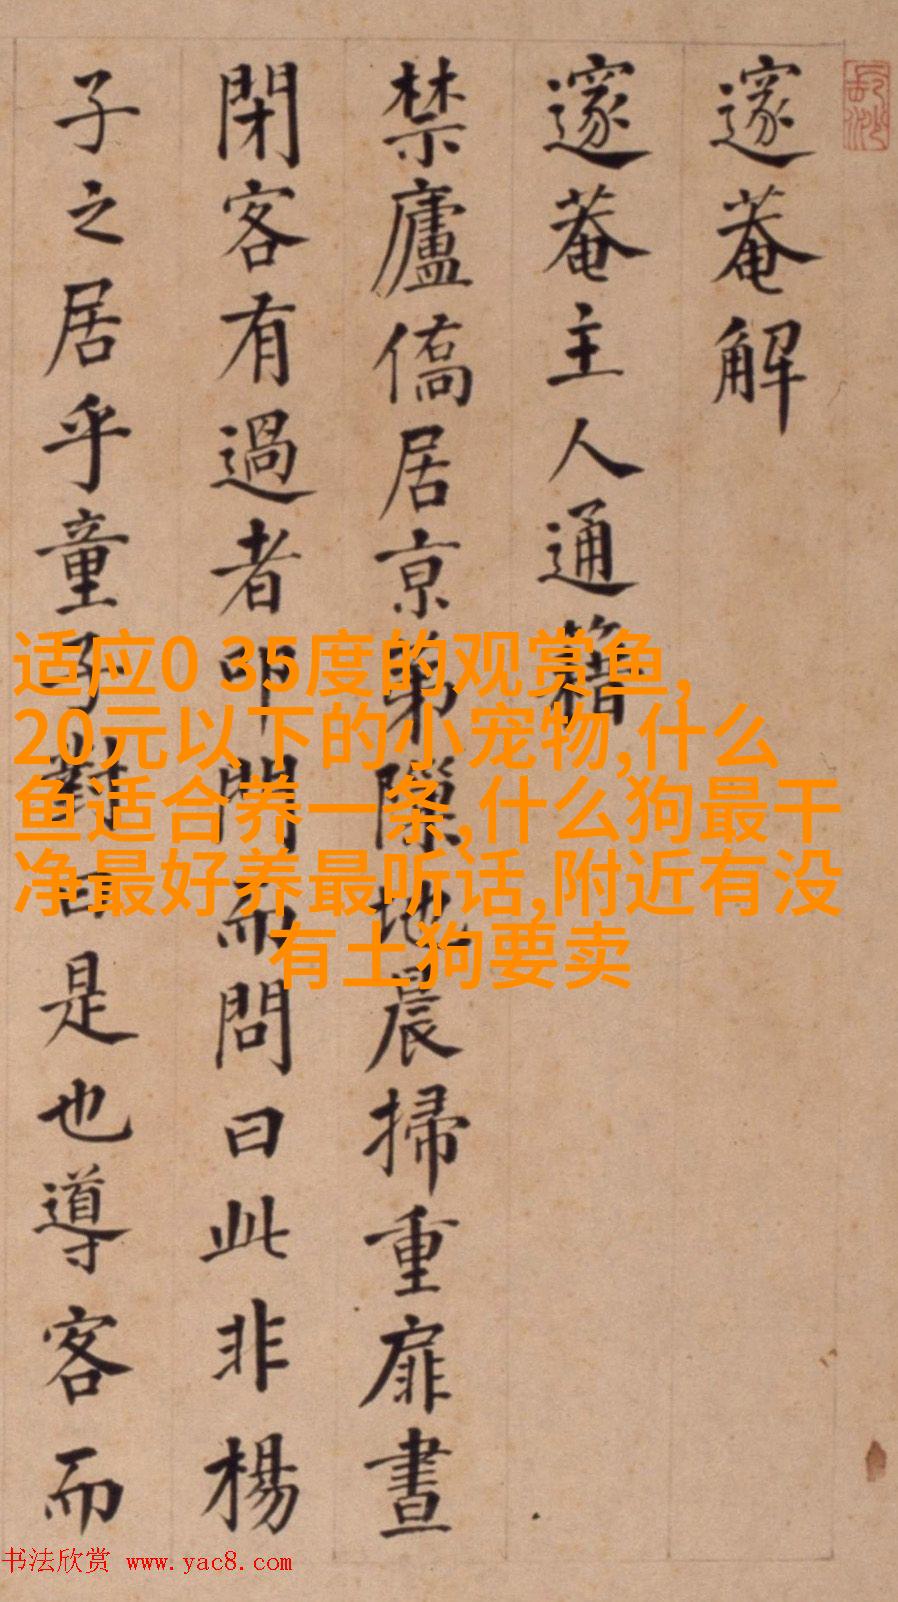 邃菴解
邃菴主人通籍
禁廬僑居京第隙地晨掃重扉晝
閉客有過者叩門而問曰此非楊
子之居乎童子對曰是也導客而
适应0 35度的观赏鱼,
20元以下的小宠物,什么
鱼适合养一条,什么狗最干
净最好养最听话,附近有没
有土狗要卖
书法欣赏 www.yac8.com